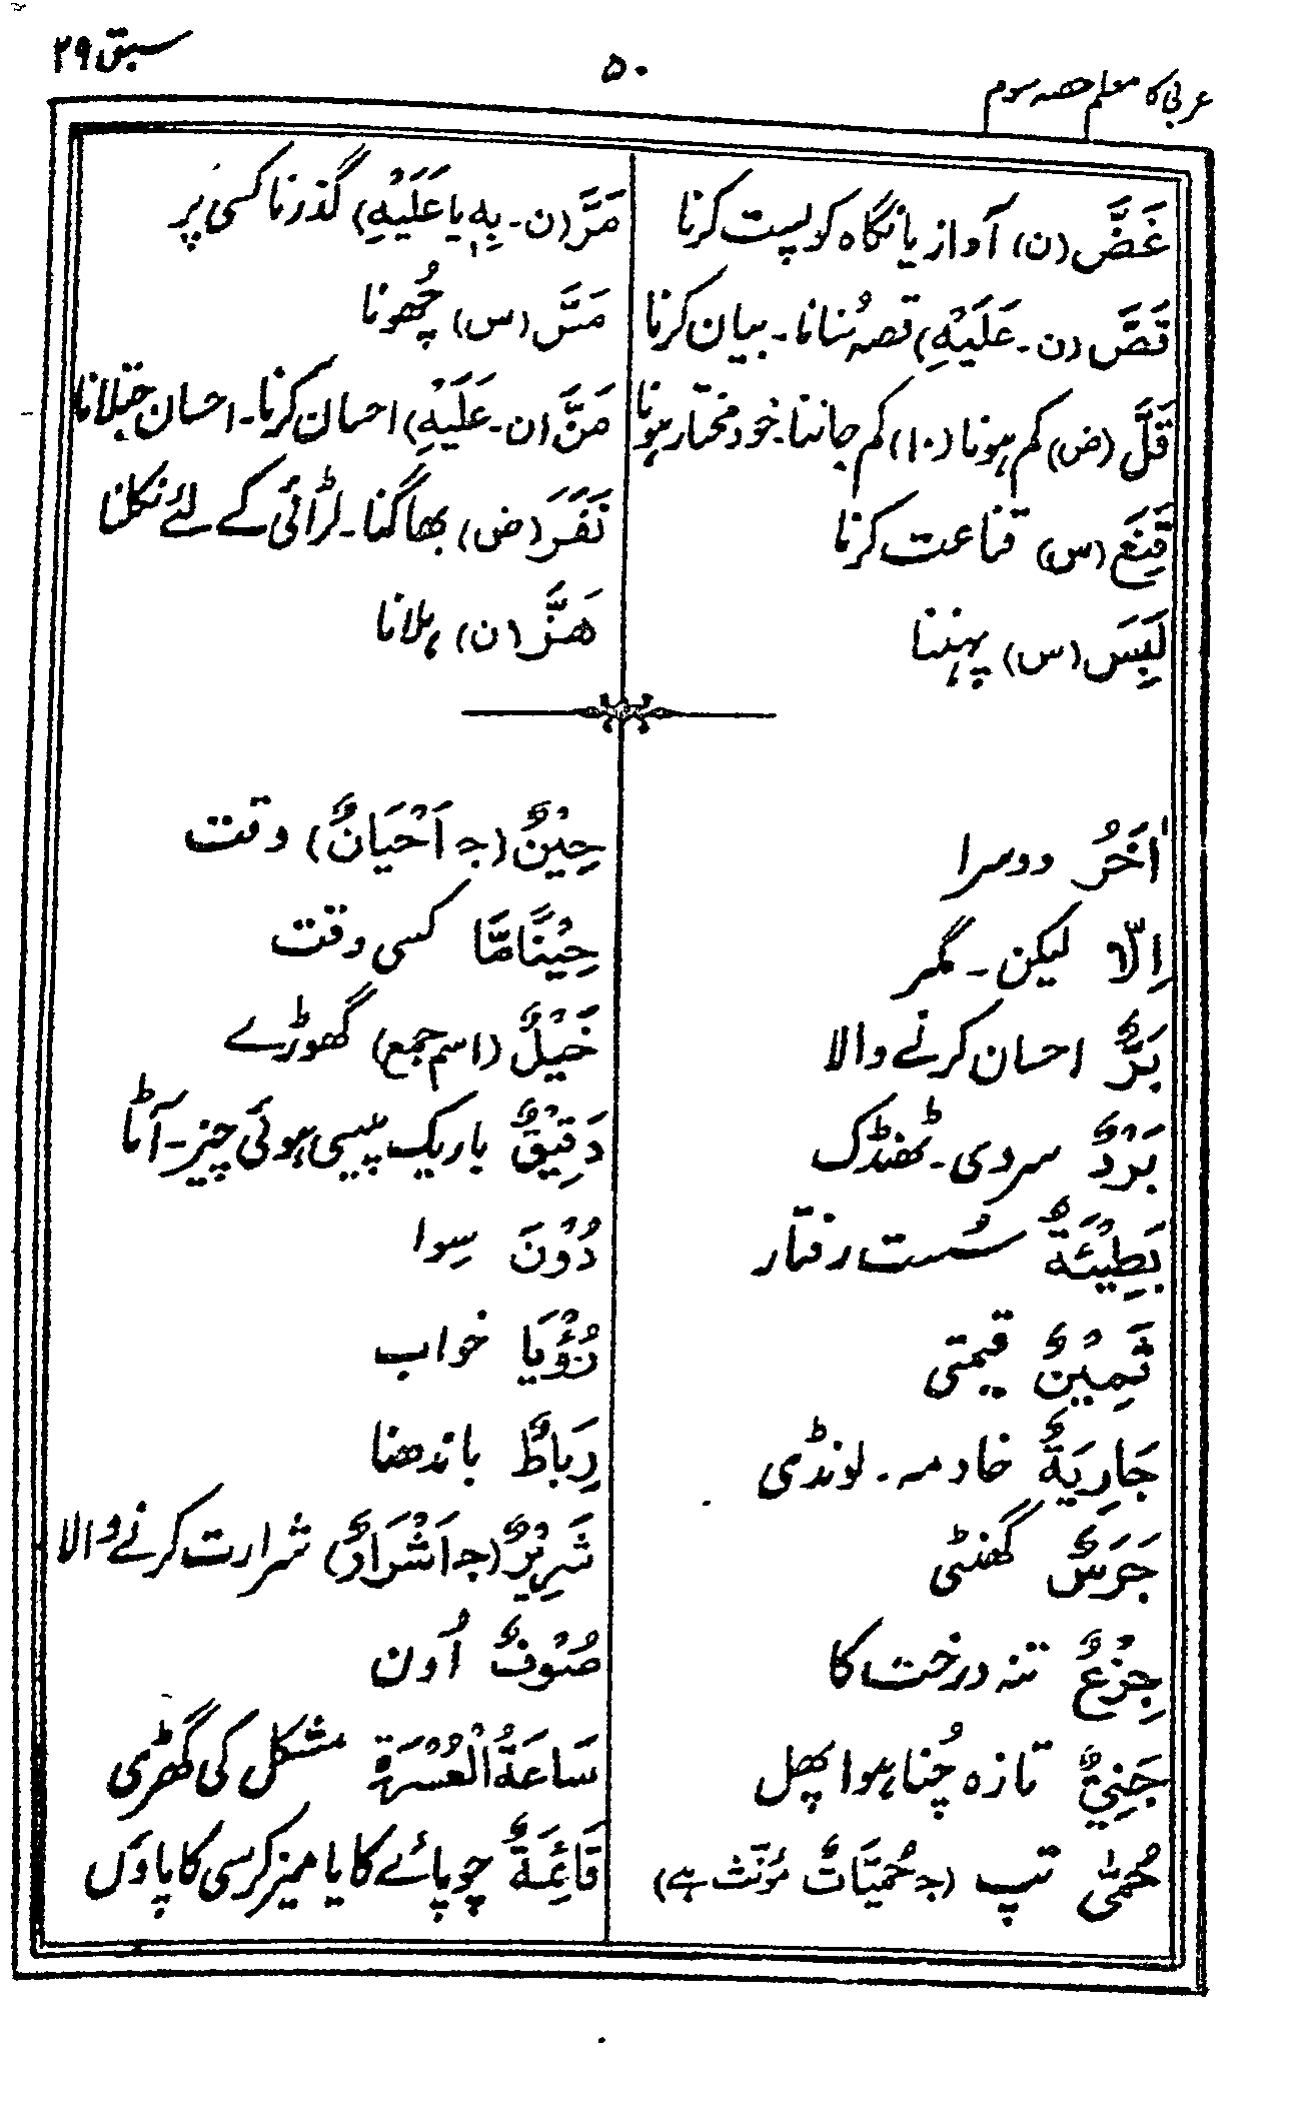 عربی کا معلم حصہ سوم
۵۰
سبق ۲۹
غَضَّ (ن) آواز یا نگاہ کو پست کرنا
قَصَّ (ن۔ عَلَيْهِ) قصہ سُنانا۔ بیان کرنا
قَلَّ (ض) کم ہونا (۱۰) کم جاننا۔ خود مختار ہونا
قَنِعَ (س) قناعت کرنا
لَبِسَ (س) پہننا
مَرَّ (ن۔ بِهٖ یا عَلَيْهِ) گذرنا کسی پر
مَسَّ (س) چُھونا
مَنَّ (ن۔ عَلَيْهِ) احسان کرنا۔ احسان جتلانا
نَفَرَ (ض) بھاگنا۔ لڑائی کے لئے نکلنا
هَزَّ (ن) ہلانا
اٰخَرُ دوسرا
اِلَّا لیکن۔ مگر
بَرٌّ احسان کرنے والا
بَرْدٌ سردی۔ ٹھنڈک
بَطِيْئَةٌ سُست رفتار
ثَمِيْنٌ قیمتی
جَارِيَةٌ خادمہ۔ لونڈی
جَرَسٌ گھنٹی
جِزْعٌ تنہ درخت کا
جَنِيٌّ تازہ چُنا ہوا پھل
حُمّٰى تپ (ج حُمَّيَاتٌ مؤنّث ہے)
حِيْنٌ (ج اَحْيَانٌ) وقت
حِيْنًامَّا کسی وقت
خَيْلٌ (اسم جمع) گھوڑے
دَقِيْقٌ باریک پسی ہوئی چیز۔ آٹا
دُوْنَ سِوا
رُؤْيَا خواب
رِبَاطٌ باندھنا
شَرِيْرٌ (ج اَشْرَارٌ) شرارت کرنے والا
صُوْفٌ اُون
سَاعَةُ الْعُسْرَةِ مشکل کی گھڑی
قَائِمَةٌ چوپائے کا یا میز کرسی کا پاؤں